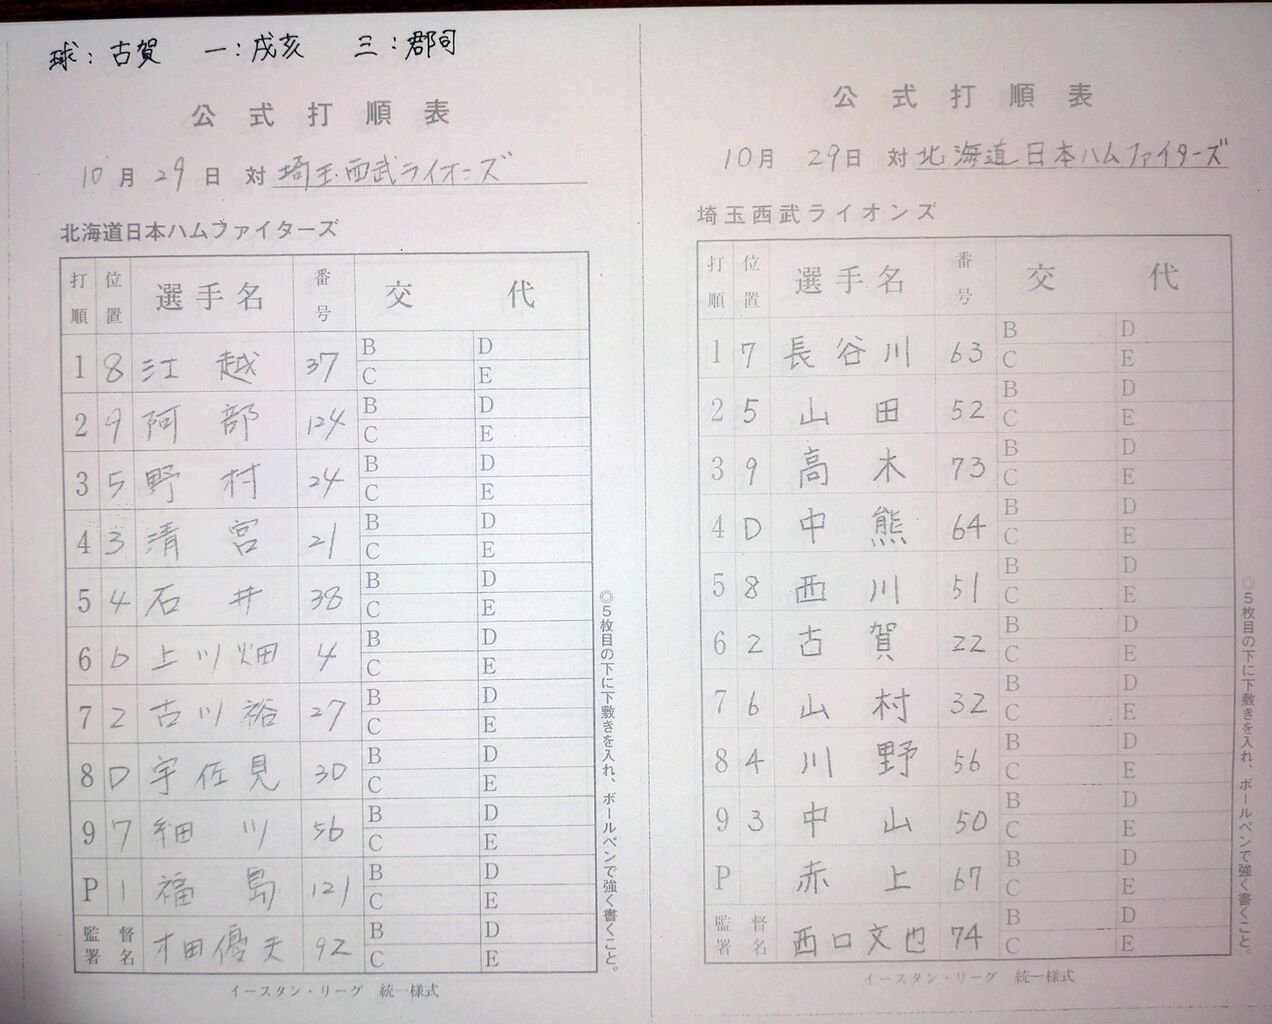 球：古賀 一：戌亥 三：郡司
公式打順表
10月29日 対 埼玉西武ライオンズ
北海道日本ハムファイターズ
打順 位置 選手名 番号 交代
1 8 江越 37 B C D E
2 9 阿部 124 B C D E
3 5 野村 24 B C D E
4 3 清宮 21 B C D E
5 4 石井 38 B C D E
6 6 上川畑 4 B C D E
7 2 古川裕 27 B C D E
8 D 宇佐見 30 B C D E
9 7 細川 56 B C D E
P 1 福島 121 B C D E
監督署名 木田優夫 92 B C D E
イースタン・リーグ 統一様式
◎5枚目の下に下敷きを入れ、ボールペンで強く書くこと。
公式打順表
10月 29日 対 北海道日本ハムファイターズ
埼玉西武ライオンズ
打順 位置 選手名 番号 交代
1 7 長谷川 63 B C D E
2 5 山田 52 B C D E
3 9 高木 73 B C D E
4 D 中熊 64 B C D E
5 8 西川 51 B C D E
6 2 古賀 22 B C D E
7 6 山村 32 B C D E
8 4 川野 56 B C D E
9 3 中山 50 B C D E
P 赤上 67 B C D E
監督署名 西口文也 74 B C D E
イースタン・リーグ 統一様式
◎5枚目の下に下敷きを入れ、ボールペンで強く書くこと。